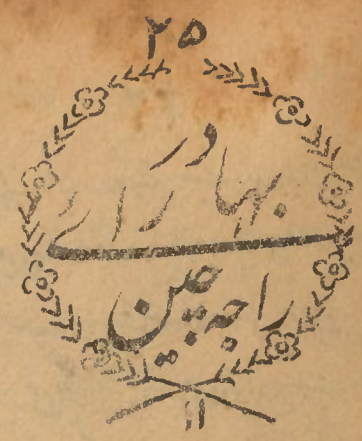 ۲۵
بہادر رائے
راجہ جین
۱۱